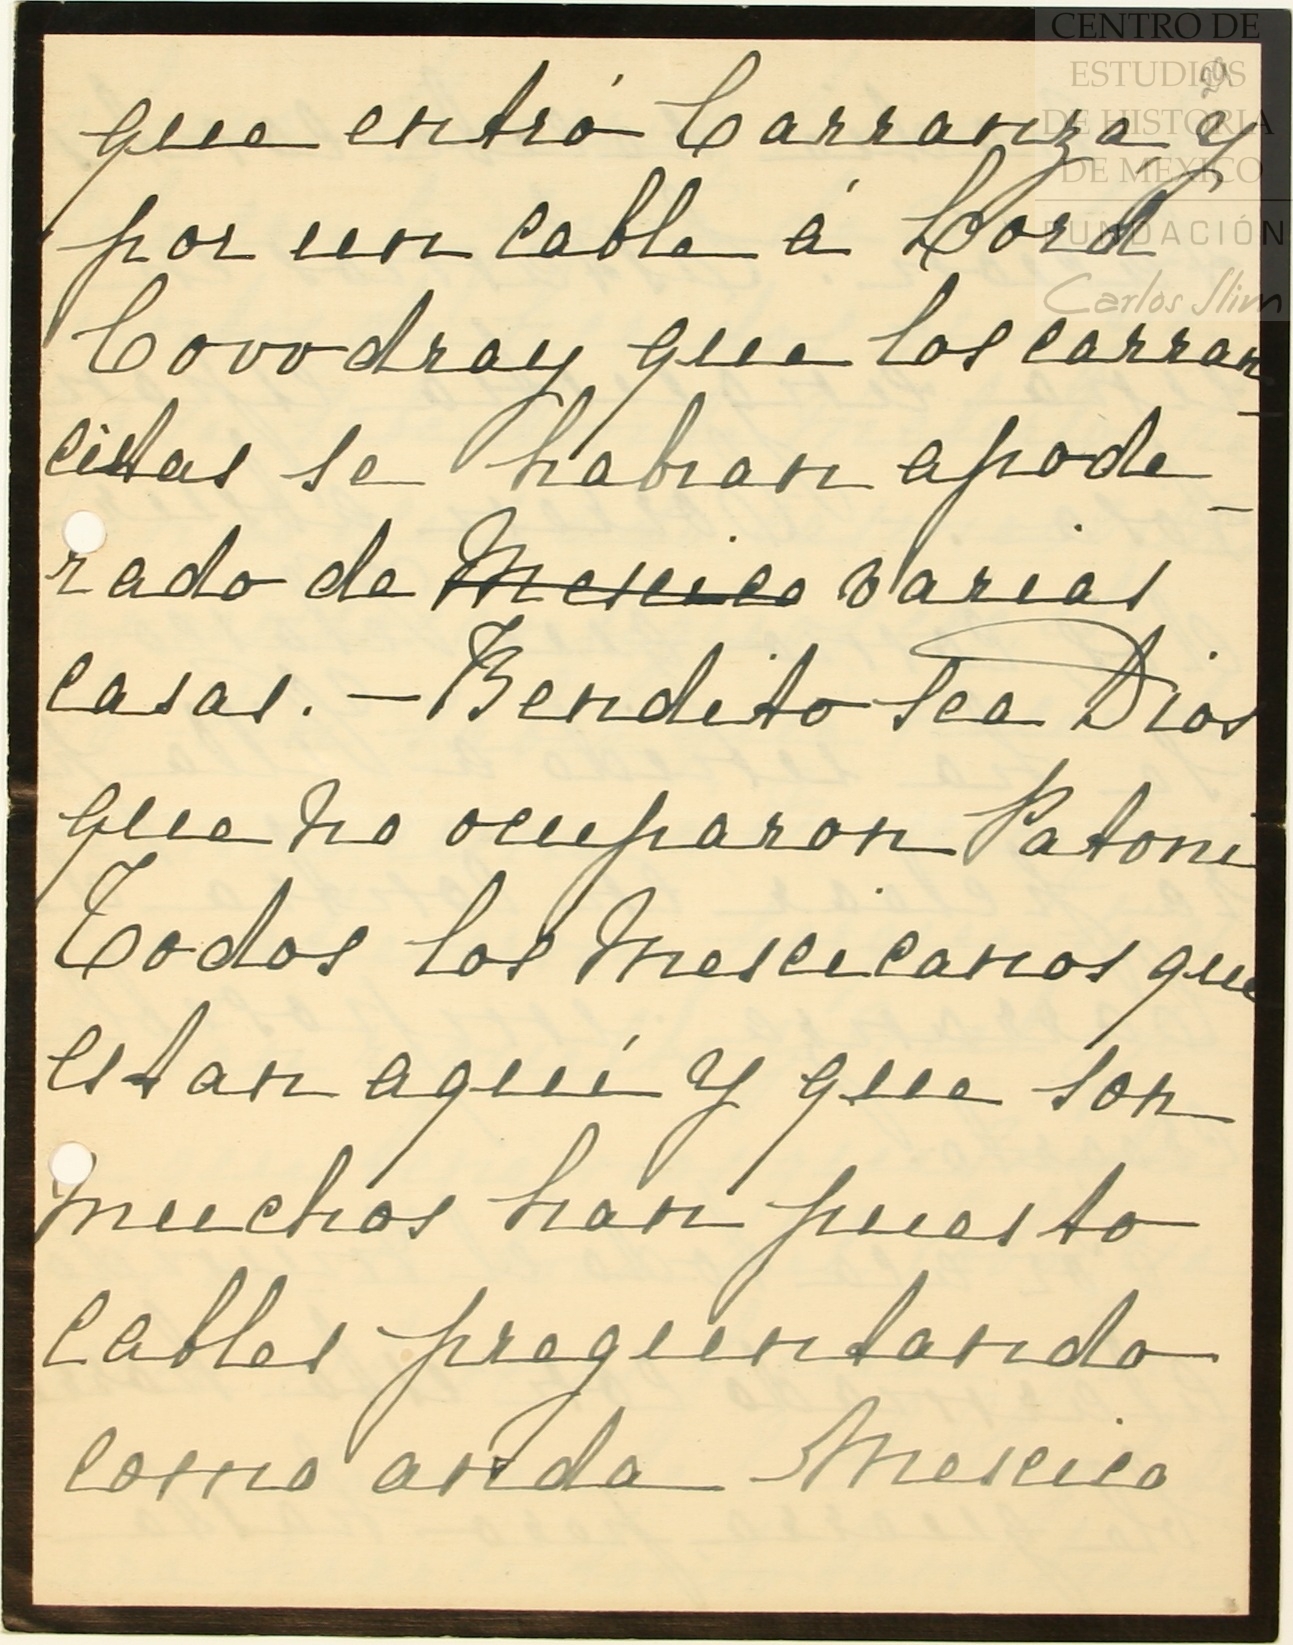 CENTRO DE
ESTUDIOS
DE HISTORIA
DE MÉXICO
FUNDACIÓN
Carlos Slim
que entró Carranza y
por un cable á Lord
Covvdray que los carran
citas se habian apode-
rado de ~~Mexico~~ varias
casas. — Bendito sea Dios
que no ocuparon Patoni
Todos los Mexicanos que
estan aquí y que son
muchos han puesto
cables preguntando
como anda Mexico